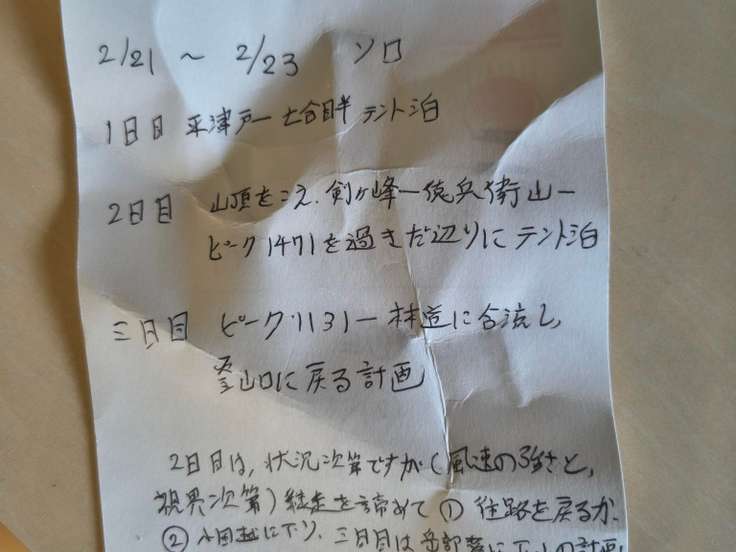 2/21 ～ 2/23 ソロ
1日目 平津戸ー七合目半 テント泊
2日目 山頂をこえ、剣ヶ峰ー徳兵衛山ー
ピーク1471を過ぎた辺りにテント泊
三日目 ピーク1131ー林道に合流し、
登山口に戻る計画
2日目は、状況次第ですが(風速の強さと、
視界次第)縦走を諦めて①往路を戻るか、
②小田越に下り、三日目は岳部落に下山の計画